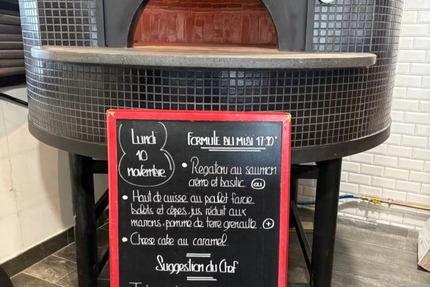 Lundi
10
novembre
FORMULE DU MIDI 17.90
• Rigatoni au saumon
crème et basilic
• Haut de cuisse au poulet farcie
bolets et cèpes, jus réduit aux
marrons, pomme de terre grenaille
• Cheese cake au caramel
Suggestion du Chef